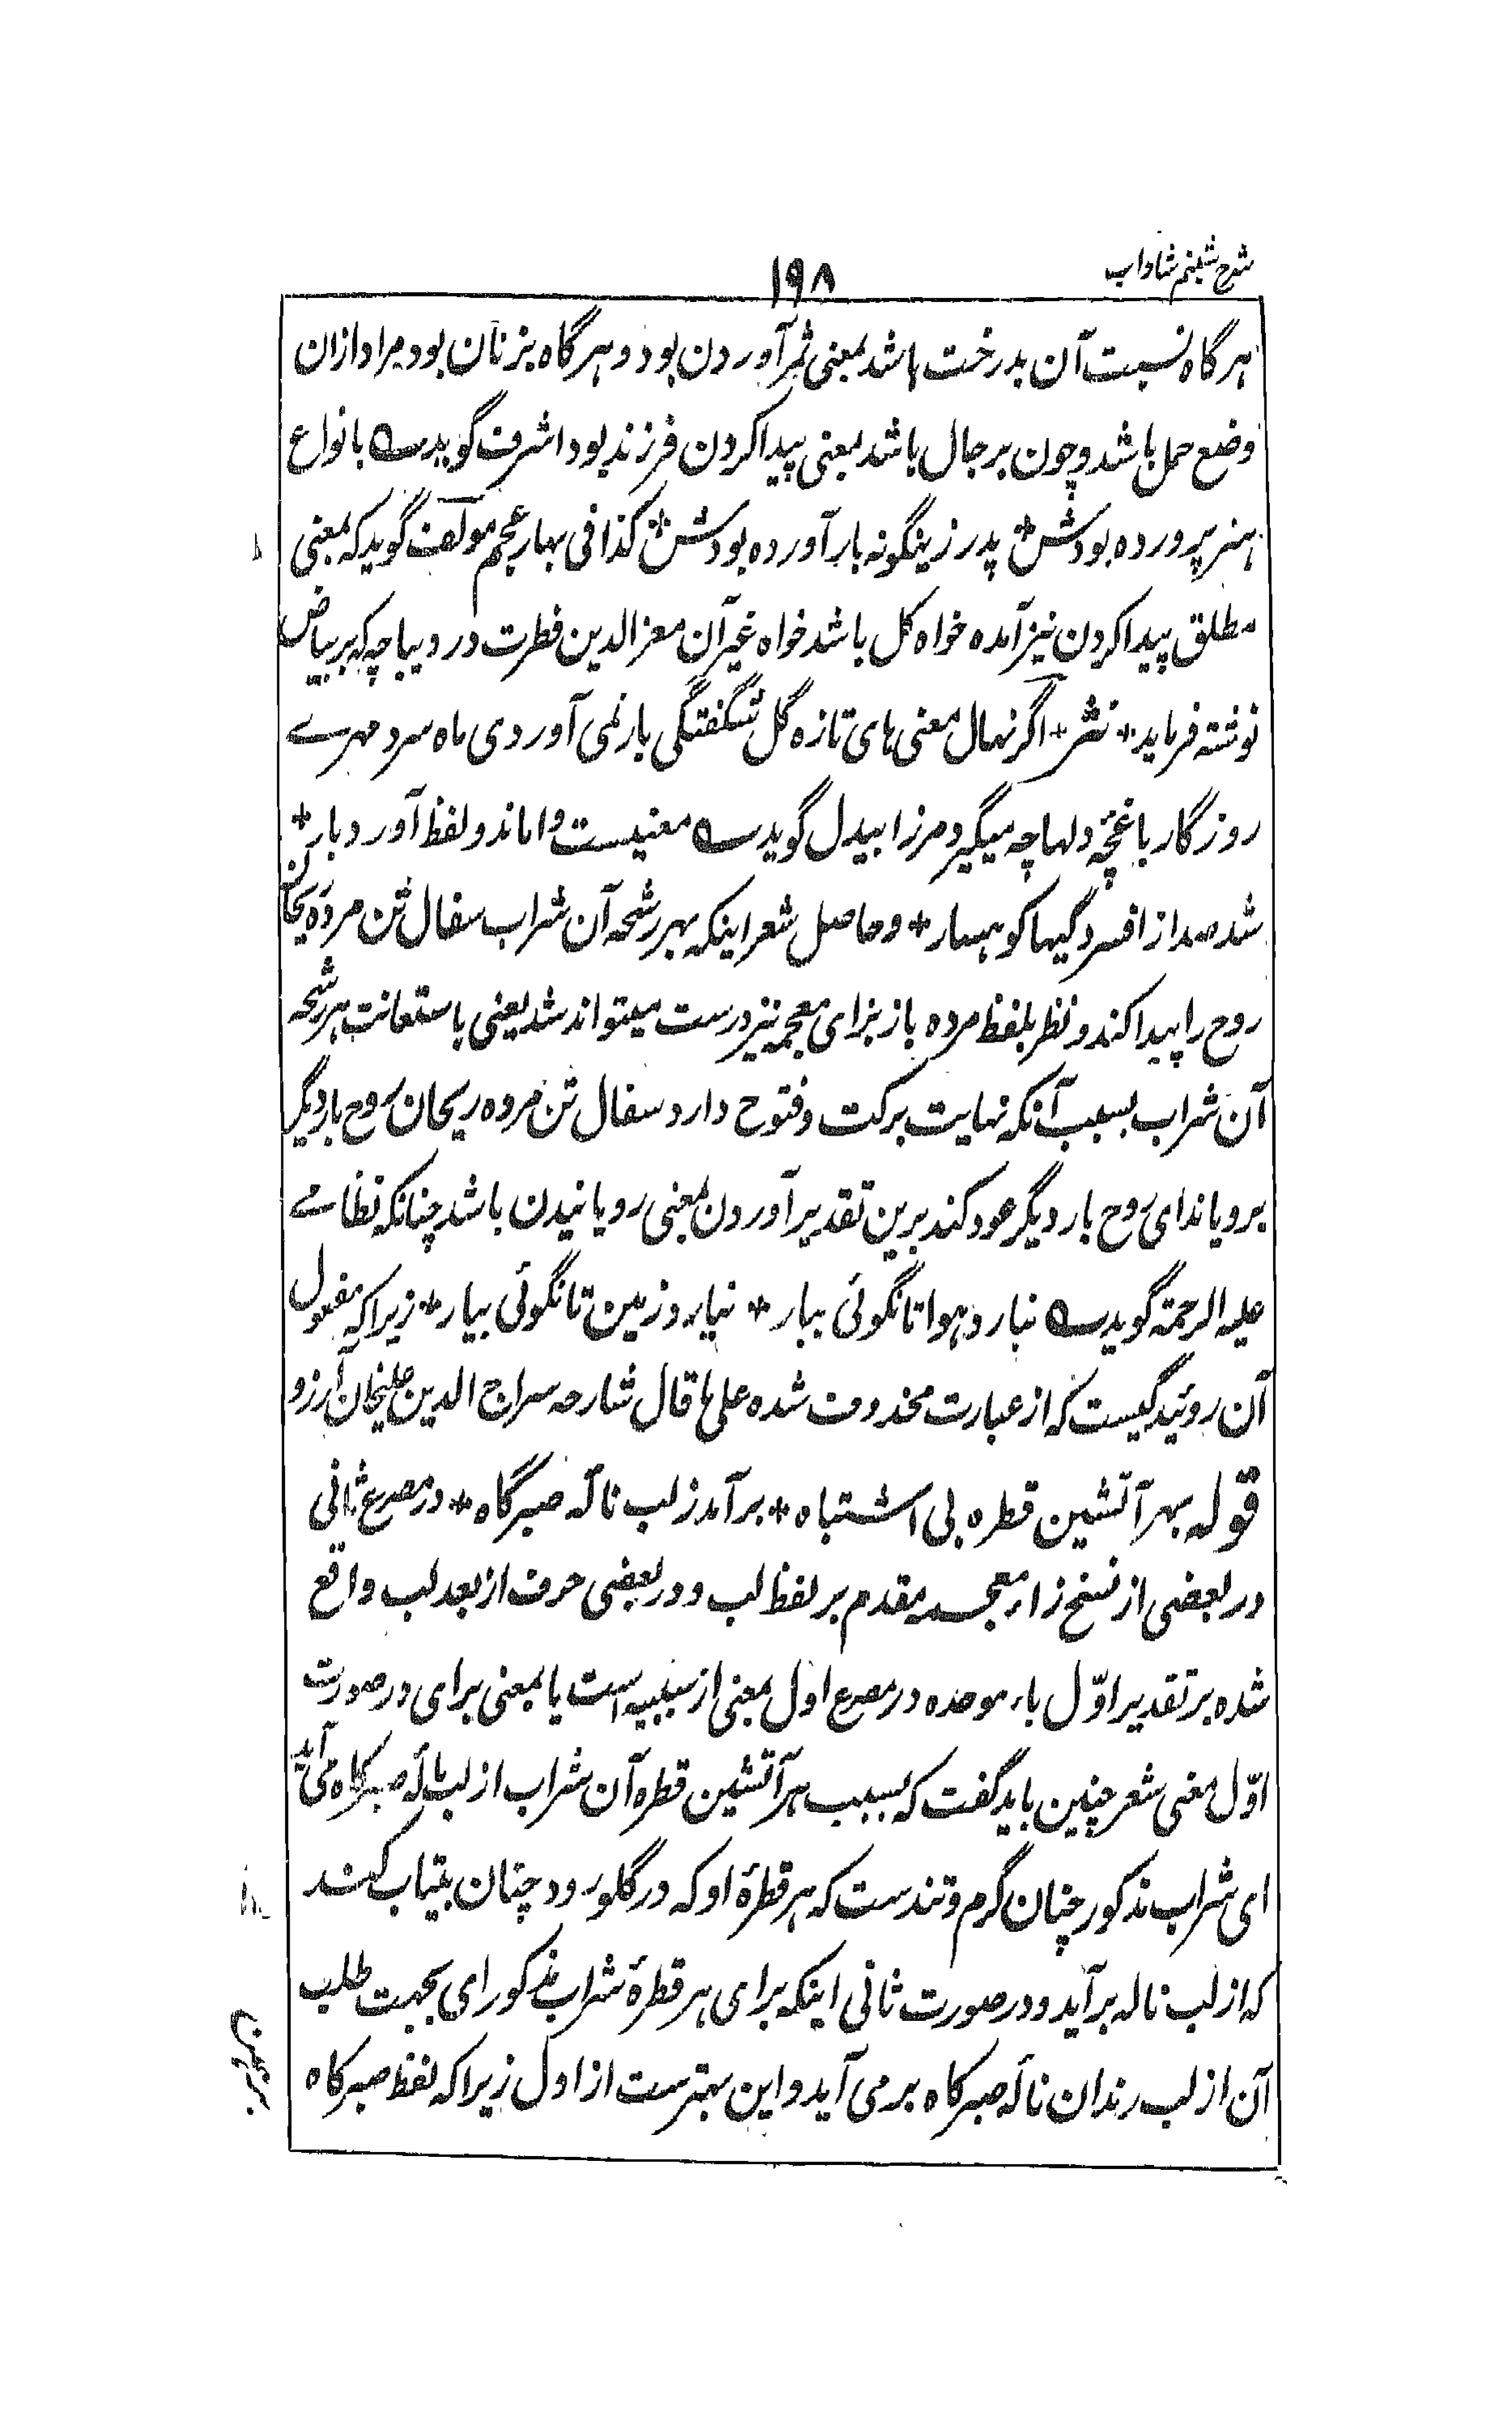 شرح شبنم شاداب
۱۹۸
هرگاه نسبت آن بدرخت باشد بمعنی ثمر آوردن بود و هرگاه بزنان بود مراد ازان
وضع حمل باشد و چون برجال باشد بمعنی پیدا کردن فرزند بود اشرف گوید ؎ بانواع
هنر پرورده بودش * پدر زینگونه بار آورده بودش * کذا فی بهار عجم مولف گوید که بمعنی
مطلق پیدا کردن نیز آمده خواه گل باشد خواه غیر آن معز الدین فطرت در دیباچه که بر بیاض
نوشته فرماید * نثر * اگر نهال معنی های تازه گل شگفتگی بار نمی آورد دی ماه سرد مهرے
روزگار با غنچۂ دلها چه میگیرد مرزا بیدل گوید ؎ معنیست واماند و لفظ آورد بار *
شد صدا از افسردگیها کوهسار * و حاصل شعر اینکه بهر رشحه آن شراب سفال تن مرده ریحان
روح را پیدا کند و نظر بلفظ مرده باز بزای معجمه نیز درست میتواند شد یعنی باستعانت هر رشحه
آن شراب بسبب آنکه نهایت برکت و فتوح دارد سفال تن مرده ریحان روح بار دیگر
برویاند ای روح بار دیگر عود کند برین تقدیر آوردن بمعنی رویانیدن باشد چنانکه نظامے
علیه الرحمة گوید ؎ نبارد هوا تا نگوئی ببار * نیارد زمین تا نگوئی بیار * زیراکه مفعول
آن روئیدگیست که از عبارت محذوف شده علی ما قال شارحه سراج الدین علیخان آرزو
قوله بهر آتشین قطره بی اشتباه * برآمد ز لب نالۂ صبر گاه * در مصرع ثانی
در بعضی از نسخ زاء معجمه مقدم بر لفظ لب و در بعضی حرف از بعد لب واقع
شده بر تقدیر اوّل باء موحده در مصرع اول بمعنی از سببیه است یا بمعنی برای در صورت
اوّل معنی شعر چنین باید گفت که بسبب هر آتشین قطره آن شراب از لب نالۂ صبر کاه می آید
ای شراب مذکور چنان گرم و تندست که هر قطرۂ او که در گلو رود چنان بیتاب کند
که از لب ناله برآید و در صورت ثانی اینکه برای هر قطرۂ شراب مذکور ای بجهت طلب
آن از لب رندان نالۂ صبر کاه بر می آید و این بهترست از اول زیراکه لفظ صبر کاه